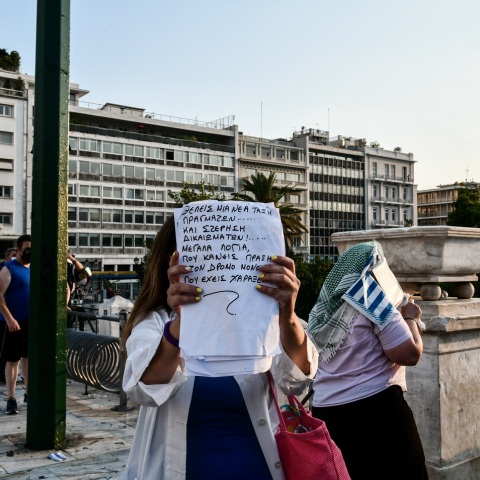 ΘΕΛΕΙΣ ΜΙΑ ΝΕΑ ΤΑΞΗ
ΠΡΑΓΜΑΤΩΝ.....
ΚΑΙ ΣΤΕΡΗΣΗ
ΔΙΚΑΙΩΜΑΤΩΝ!.....
ΜΕΓΑΛΑ ΛΟΓΙΑ,
ΠΟΥ ΚΑΝΕΙΣ ΠΡΑΞΗ
ΣΤΟΝ ΔΡΟΜΟ ΜΟΝΟΣ
ΠΟΥ ΕΧΕΙΣ ΧΑΡΑΞΕ